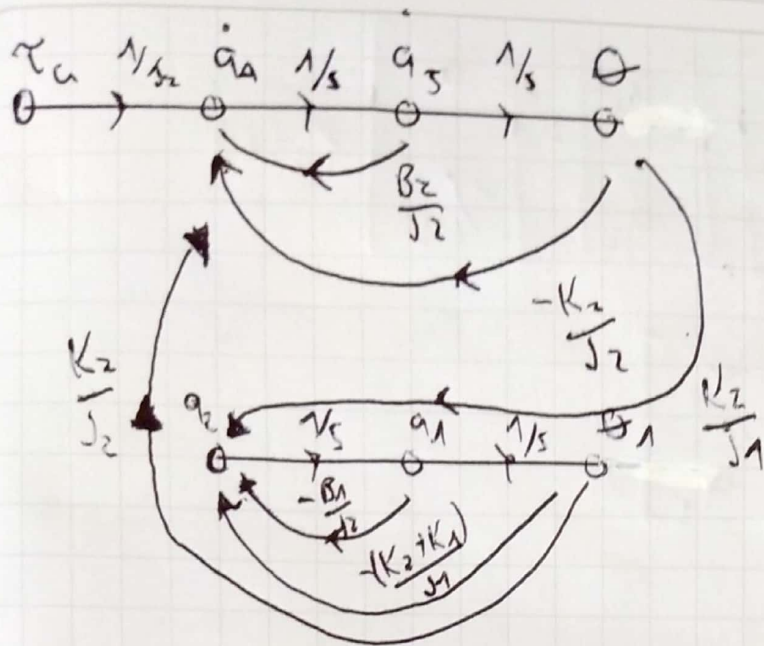 τa 1/J2 q̇4 1/s q̇3 1/s θ
B2/J2
-K2/J2
K2/J2
K2/J1
q2 1/s q1 1/s θ1
-B1/J2
-(K2+K1)/J1